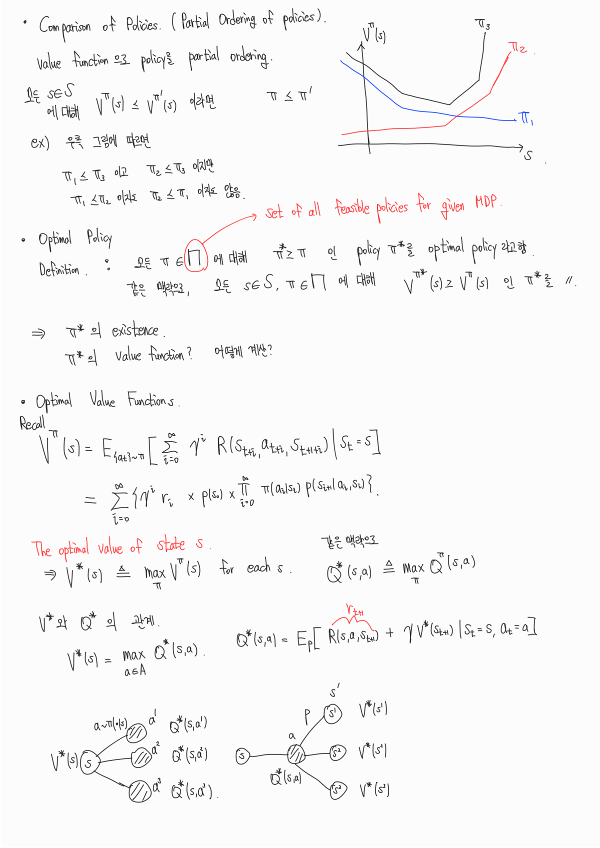 • Comparison of Policies. (Partial Ordering of policies).
value function 으로 policy를 partial ordering.
모든 s∈S 에 대해 V^π(s) ≤ V^π'(s) 이라면 π ≤ π'
ex) 우측 그림에 따르면
π₁ ≤ π₃ 이고 π₂ ≤ π₃ 이지만
π₁ ≤ π₂ 이지도 π₂ ≤ π₁ 이지도 않음.
V^π(s)
π₃
π₂
π₁
s
set of all feasible policies for given MDP.
• Optimal Policy
Definition. : 모든 π ∈ Π 에 대해 π* ≥ π 인 policy π*를 optimal policy라고 함.
같은 맥락으로, 모든 s∈S, π∈Π 에 대해 V^π*(s) ≥ V^π(s) 인 π*를 〃.
⇒ π* 의 existence.
π* 의 value function? 어떻게 계산?
• Optimal Value Functions.
Recall
V^π(s) = E_{a_t}~π [ Σ_{i=0}^∞ γ^i R(S_{t+i}, a_{t+i}, S_{t+1+i}) | S_t = s ]
= Σ_{i=0}^∞ {γ^i r_i × p(s₀) × Π_{i=0}^∞ π(a_i|s_i) p(s_{i+1}|a_i,s_i)}.
The optimal value of state s.
⇒ V*(s) ≜ max_π V^π(s) for each s.
같은 맥락으로
Q*(s,a) ≜ max_π Q^π(s,a)
V*와 Q* 의 관계.
V*(s) = max_{a∈A} Q*(s,a).
r_{t+1}
Q*(s,a) = E_p[ R(s,a,s_{t+1}) + γV*(s_{t+1}) | S_t = s, a_t = a ]
a~π(·|s)
V*(s) s
a¹ Q*(s,a¹)
a² Q*(s,a²)
a³ Q*(s,a³).
s'
p
s
a
Q*(s,a)
s¹ V*(s¹)
s² V*(s²)
s³ V*(s³)